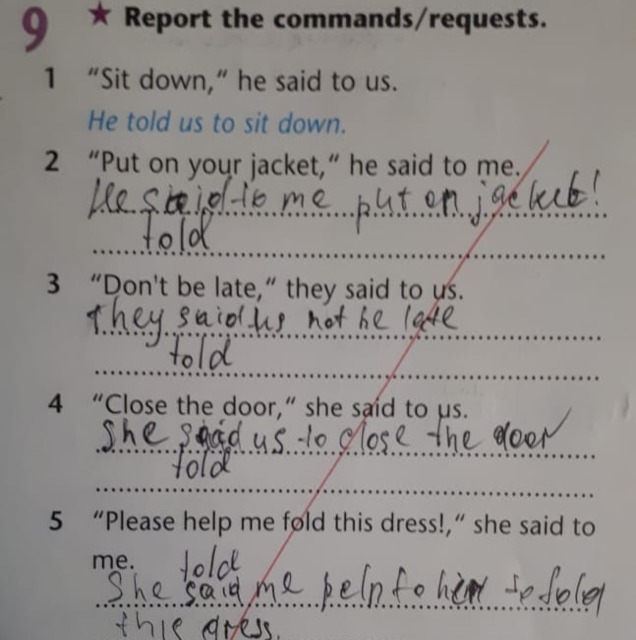 9 ★ Report the commands/requests.
1 "Sit down," he said to us.
He told us to sit down.
2 "Put on your jacket," he said to me.
He said to me put on jacket!
told
3 "Don't be late," they said to us.
they said us not be late
told
4 "Close the door," she said to us.
She said us to close the door
told
5 "Please help me fold this dress!," she said to
me. told
She said me pelp to her to fold
this dress.